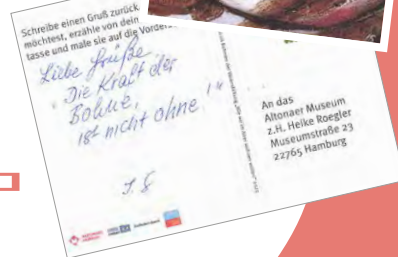 Schreibe einen Gruß zurück
möchtest, erzähle von dein
tasse und male sie auf die Vorders
Liebe Grüße
"Die Kraft der
Bohne,
ist nicht ohne!"
J. S
An das
Altonaer Museum
z.H. Heike Roegler
Museumstraße 23
22765 Hamburg